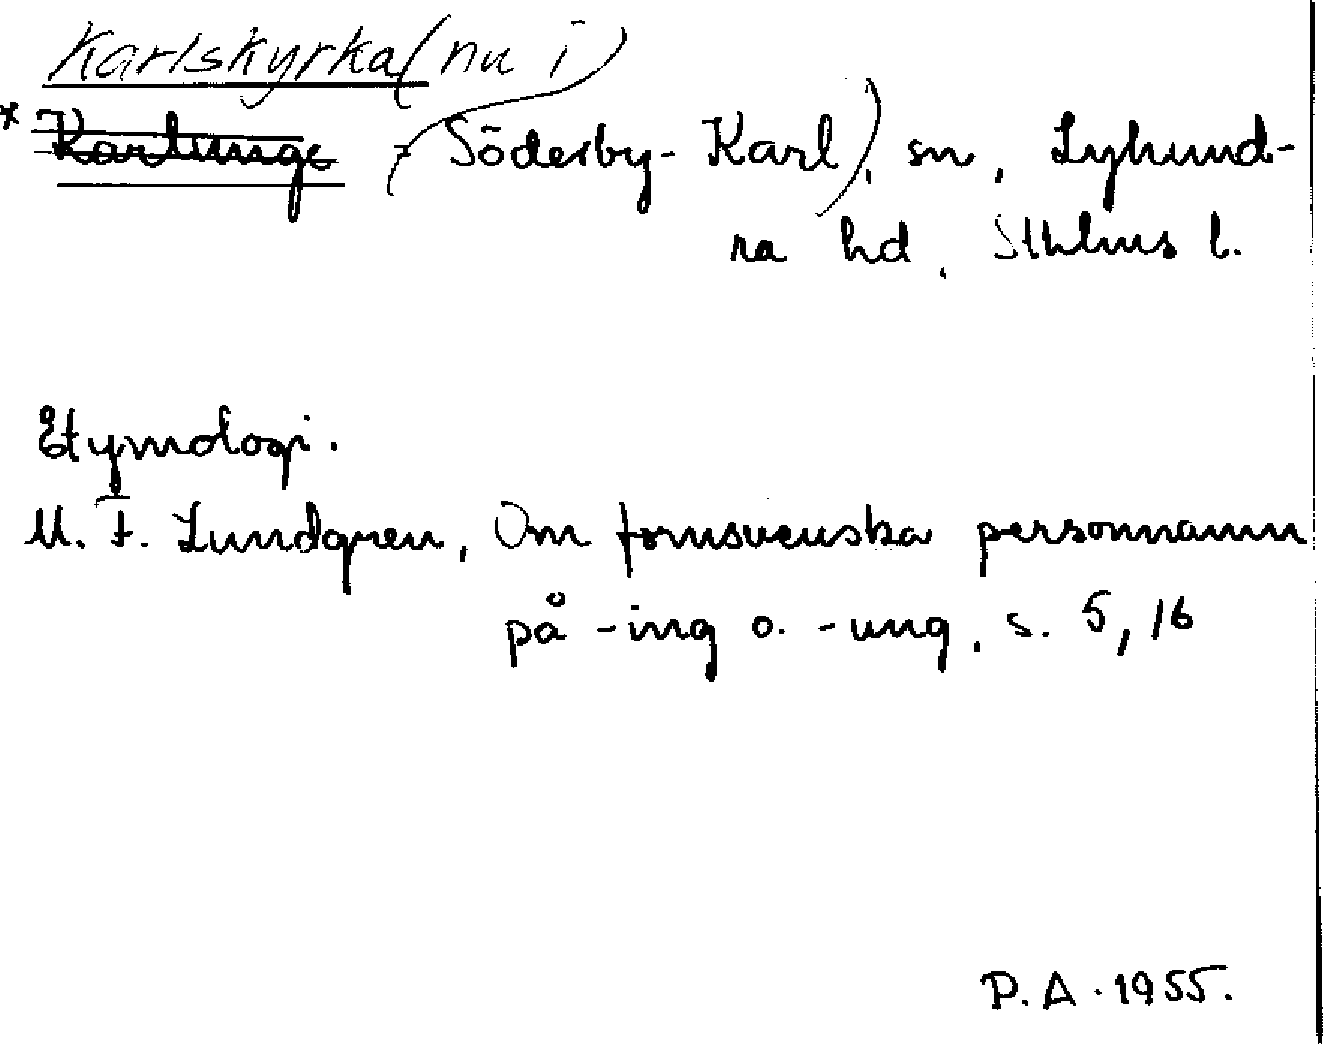 Karlskyrka (nu i)
* Karlunge - Söderby-Karl), sn, Lyhund-
ra hd, Sthlms l.
Etymologi.
M. F. Lundgren, Om fornsvenska personnamn
på -ing o. -ung, s. 5, 16
P.A. 1955.